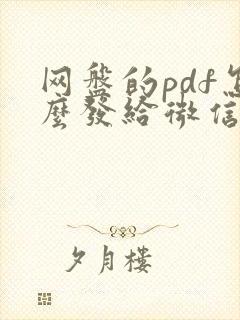 网盘的pdf怎
麽發給微信
夕月樓